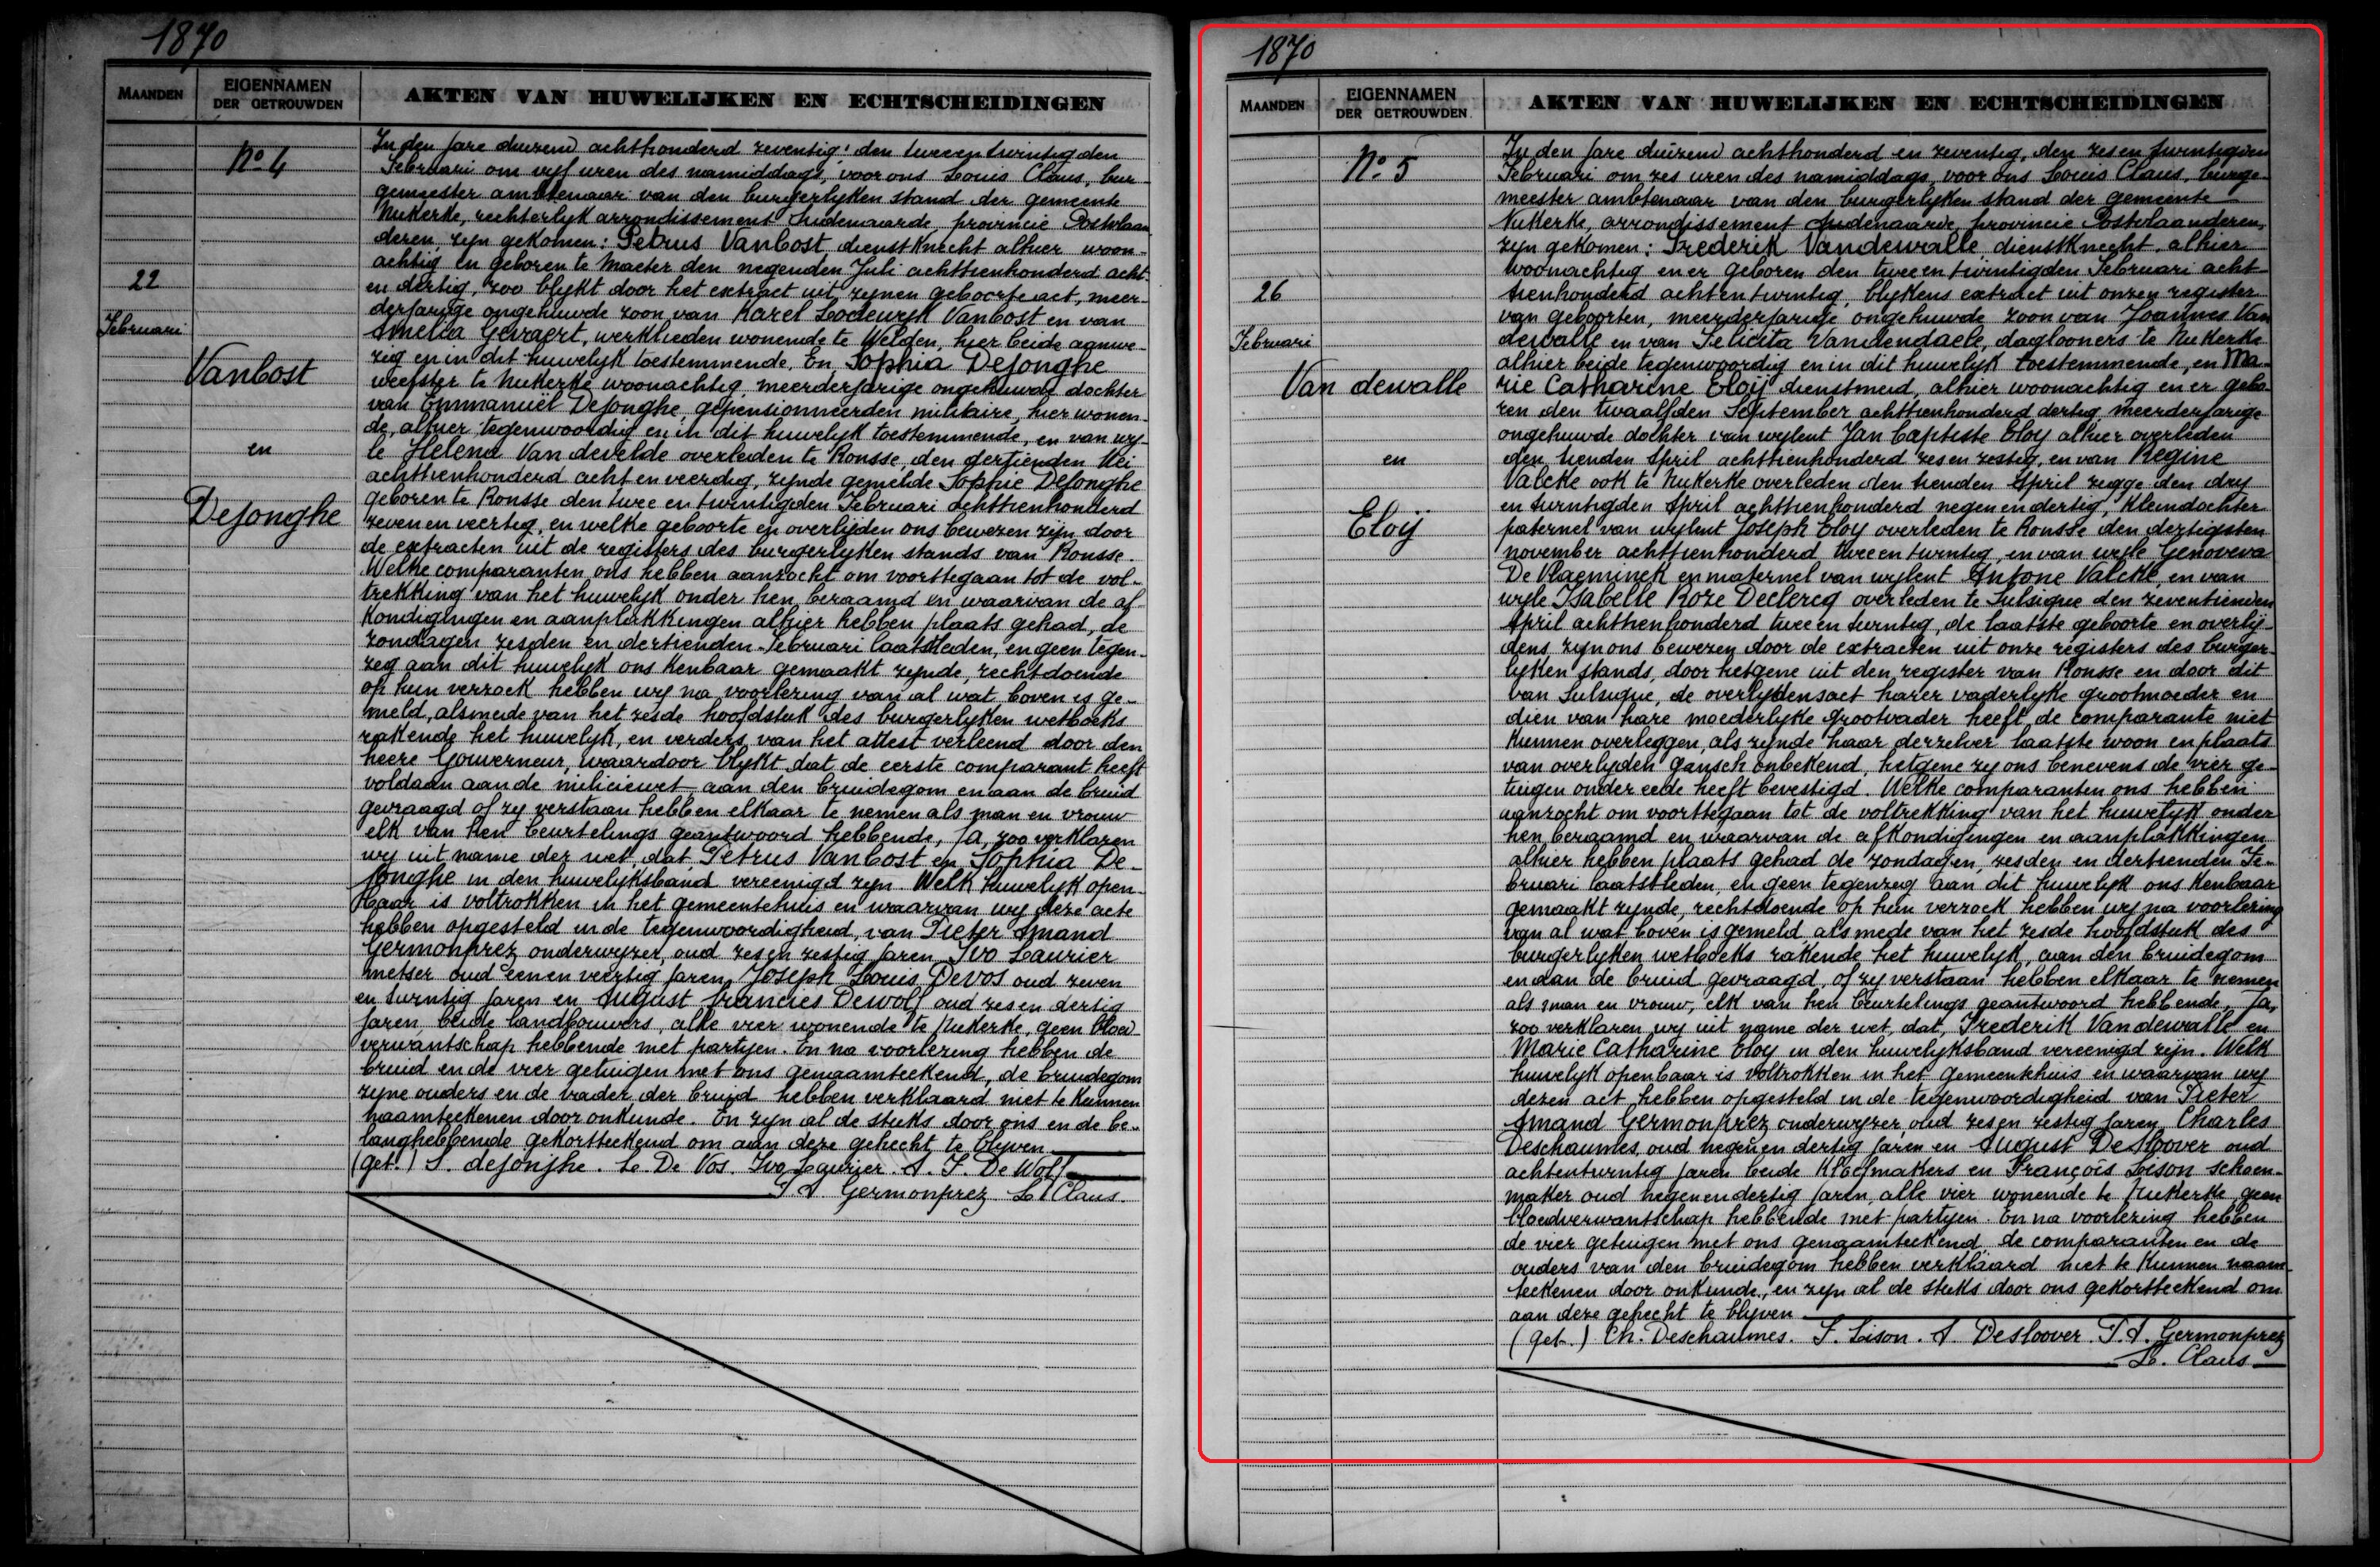 1870
MAANDEN
EIGENNAMEN
DER GETROUWDEN
AKTEN VAN HUWELIJKEN EN ECHTSCHEIDINGEN
No 4
22
Februari
Vanbost
en
Dejonghe
In den jare duizend achthonderd zeventig, den tweeentwintigden
Februari om vyf uren des namiddags, voor ons Louis Claus, bur-
gemeester ambtenaar van den burgerlyken stand der gemeente
Nukerke, rechterlyk arrondissement Audenaarde, provincie Oostvlaan
deren, zyn gekomen: Petrus Vanbost, dienstknecht alhier woon-
achtig en geboren te Maeter den negenden Juli achttienhonderd acht
en dertig, zoo blykt door het extract uit zynen geboorte act, meer-
derjarige ongehuwde zoon van Karel Lodewyk Vanbost en van
Amelia Gevaert, werklieden wonende te Welden, hier beide aanwe-
zig en in dit huwelyk toestemmende. En, Sophia Dejonghe
weefster te Nukerke woonachtig, meerderjarige ongehuwde dochter
van Emmanuël Dejonghe, gepensionneerden militaire, hier wonen-
de, alhier tegenwoordig en in dit huwelyk toestemmende, en van wy-
le Helena Van develde overleden te Ronsse, den dertienden Mei
achttienhonderd acht en veerdig, zynde gemelde Sophie Dejonghe
geboren te Ronsse den twee en twintigden Februari achttienhonderd
zeven en veertig, en welke geboorte en overlijden ons bewezen zijn door
de extracten uit de registers des burgerlyken stands van Ronsse.
Welke comparanten ons hebben aanzocht om voorttegaan tot de vol-
trekking van het huwelyk onder hen beraamd en waarvan de af-
kondigingen en aanplakkingen alhier hebben plaats gehad, de
zondagen zesden en dertienden Februari laatstleden, en geen tegen-
zeg aan dit huwelyk ons kenbaar gemaakt zynde, rechtdoende
op hun verzoek hebben wy na voorlezing van al wat boven is ge-
meld, alsmede van het zesde hoofdstuk des burgerlyken wetboeks
rakende het huwelyk, en verders van het attest verleend door den
heere Gouverneur, waardoor blykt dat de eerste comparant heeft
voldaan aan de miliciewet, aan den bruidegom en aan de bruid
gevraagd of zy verstaan hebben elkaar te nemen als man en vrouw
elk van hen beurtelings geantwoord hebbende, Ja, zoo verklaren
wy uit name der wet, dat Petrus Vanbost en Sophia De-
jonghe in den huwelyksband vereenigd zyn. Welk huwelyk open-
baar is voltrokken in het gemeentehuis en waarvan wy deze acte
hebben opgesteld in de tegenwoordigheid, van Pieter Amand
Germonprez onderwyzer, oud zes en zestig jaren, Ivo Laurier
metser oud eenen veertig jaren, Joseph Louis Devos oud zeven
en twintig jaren en August francies Dewolf oud zes en dertig
jaren, beide landbouwers, alle vier wonende te Nukerke, geen bloed
verwantschap hebbende met partyen. En na voorlezing hebben de
bruid en de vier getuigen met ons genaamteekend, de bruidegom
zyne ouders en de vader der bruid hebben verklaard niet te kunnen
naamteekenen door onkunde. En zyn al de stuks door ons en de be-
langhebbende gekortteekend om aan deze gehecht te blyven
(Get.) S. dejonghe. L. De Vos. Ivo Laurier. A. F. De Wolf
P A Germonprez L. Claus.
1870
MAANDEN
EIGENNAMEN
DER GETROUWDEN
AKTEN VAN HUWELIJKEN EN ECHTSCHEIDINGEN
No 5
26
Februari
Van dewalle
en
Eloij
In den jare duizend achthonderd en zeventig, den zes en twintigden
Februari om zes uren des namiddags, voor ons Louis Claus, burge-
meester ambtenaar van den burgerlyken stand der gemeente
Nukerke, arrondissement Audenaarde, provincie Oostvlaanderen,
zyn gekomen: Frederik Vandewalle, dienstknecht, alhier
woonachtig en er geboren den twee en twintigden Februari acht
tienhonderd achtentwintig, blykens extract uit onzen register
van geboorten, meerderjarige ongehuwde zoon van Joannes Van
dewalle en van Felicita Vandendaele, daglooners te Nukerke
alhier beide tegenwoordig en in dit huwelyk toestemmende, en Ma-
rie Catharine Eloij dienstmeid, alhier woonachtig en er gebo-
ren den twaalfden September achttienhonderd dertig meerderjarige
ongehuwde dochter van wylent Jan Baptiste Eloy alhier overleden
den tienden April achttienhonderd zes en zestig, en van Regine
Valcke ook te Nukerke overleden den tienden April zegge den dry
en twintigden April achttienhonderd negen en dertig, kleindochter
paternel van wylent Joseph Eloy overleden te Ronsse den dertigsten
november achttienhonderd twee en twintig, en van wyle Genoveva
De Vlaeminck en maternel van wylent Antone Valcke, en van
wyle Isabelle Roze Declercq overleden te Sulsique den zeventienden
April achttienhonderd twee en twintig, de laatste geboorte en overly-
dens zyn ons bewezen door de extracten uit onze registers des burger-
lyken stands, door hetgene uit den register van Ronsse en door dit
van Sulsique, de overlydensact harer vaderlyke grootmoeder en
dien van hare moederlyke grootvader heeft de comparante niet
kunnen overleggen, als zynde haar derzelver laatste woon en plaats
van overlyden gansch onbekend, hetgene zy ons benevens de vier ge-
tuigen onder eede heeft bevestigd. Welke comparanten ons hebben
aanzocht om voorttegaan tot de voltrekking van het huwelyk onder
hen beraamd en waarvan de afkondigingen en aanplakkingen
alhier hebben plaats gehad de zondagen, zesden en dertienden Fe-
bruari laatstleden, en geen tegenzeg aan dit huwelyk ons kenbaar
gemaakt zynde, rechtdoende op hun verzoek hebben wy na voorlezing
van al wat boven is gemeld, alsmede van het zesde hoofdstuk des
burgerlyken wetboeks rakende het huwelyk, aan den bruidegom
en aan de bruid gevraagd, of zy verstaan hebben elkaar te nemen
als man en vrouw, elk van hen beurtelings geantwoord hebbende, Ja,
zoo verklaren wy uit name der wet, dat, Frederik Vandewalle en
Marie Catharine Eloy in den huwelyksband vereenigd zijn. Welk
huwelyk openbaar is voltrokken in het gemeentehuis en waarvan wy
dezen act hebben opgesteld in de tegenwoordigheid van Pieter
Amand Germonprez onderwyzer, oud zes en zestig jaren, Charles
Deschaumes, oud negen en dertig jaren en August De Sloover oud
achtentwintig jaren beide kloefmakers en François Lison schoen-
maker oud negenendertig jaren, alle vier wonende te Nukerke, geen
bloedverwantschap hebbende met partyen. En na voorlezing hebben
de vier getuigen met ons genaamteekend, de comparanten en de
ouders van den bruidegom hebben verklaard niet te kunnen naam-
teekenen door onkunde, en zyn al de stuks door ons gekortteekend om
aan deze gehecht te blyven
(get.) Ch. Deschaumes. F. Lison. A Desloover. P. A. Germonprez
L. Claus